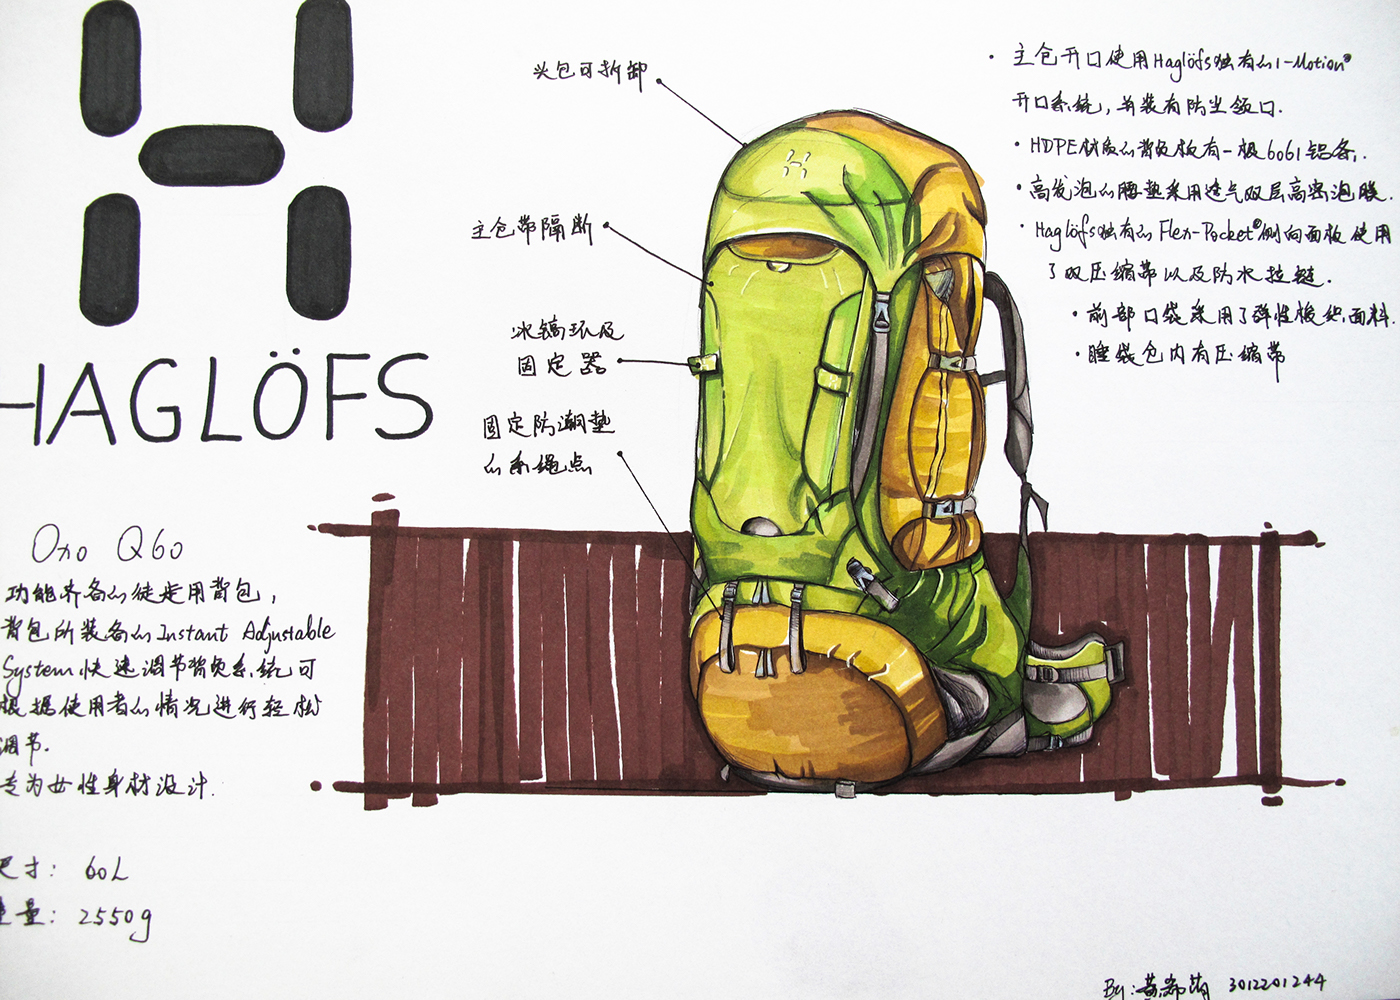 HAGLÖFS
Oxo Q60
功能齐备的徒步用背包，
背包所装备的Instant Adjustable
System快速调节背负系统可
根据使用者的情况进行轻松
调节.
专为女性身材设计.
尺寸： 60L
重量： 2550g
头包可拆卸
主仓带隔断
冰镐环及
固定器
固定防潮垫
的系绳点
· 主仓开口使用Haglöfs独有的I-Motion®
开口系统，并装有防尘领口.
· HDPE材质的背负板有一根6061铝条.
· 高发泡的腰垫采用透气双层高密泡膜.
· Haglöfs独有的Flex-Pocket®侧向面板使用
了双压缩带以及防水拉链.
· 前部口袋采用了弹性梭织面料.
· 睡袋包内有压缩带
By: 3012201244